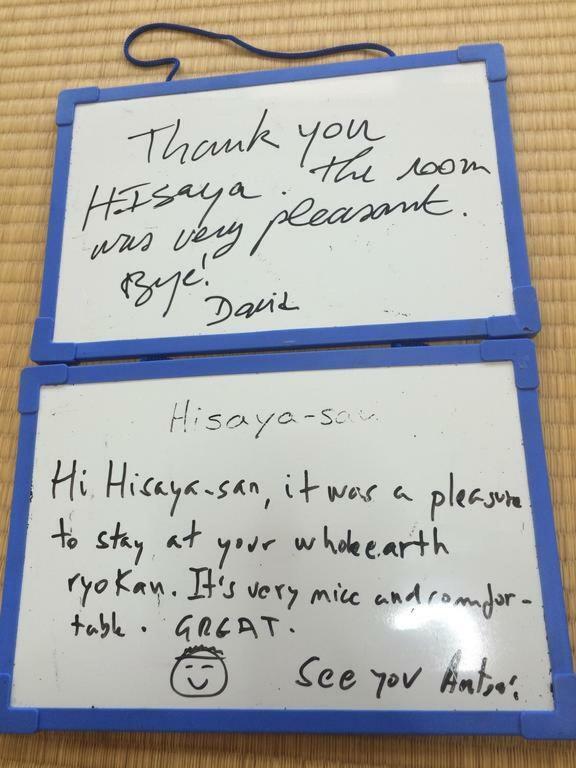 Thank you
HIsaya. The room
was very pleasant.
Bye!
David
Hisaya-san
Hi Hisaya-san, it was a pleasure
to stay at your wholeearth
ryokan. It's very nice and comfor-
table. GREAT.
See you